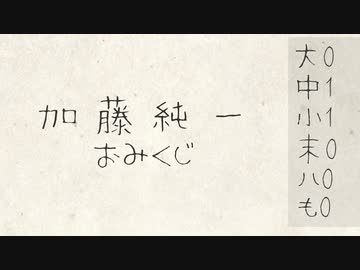 加藤純一
おみくじ
大0
中1
小1
末0
ハ0
も0